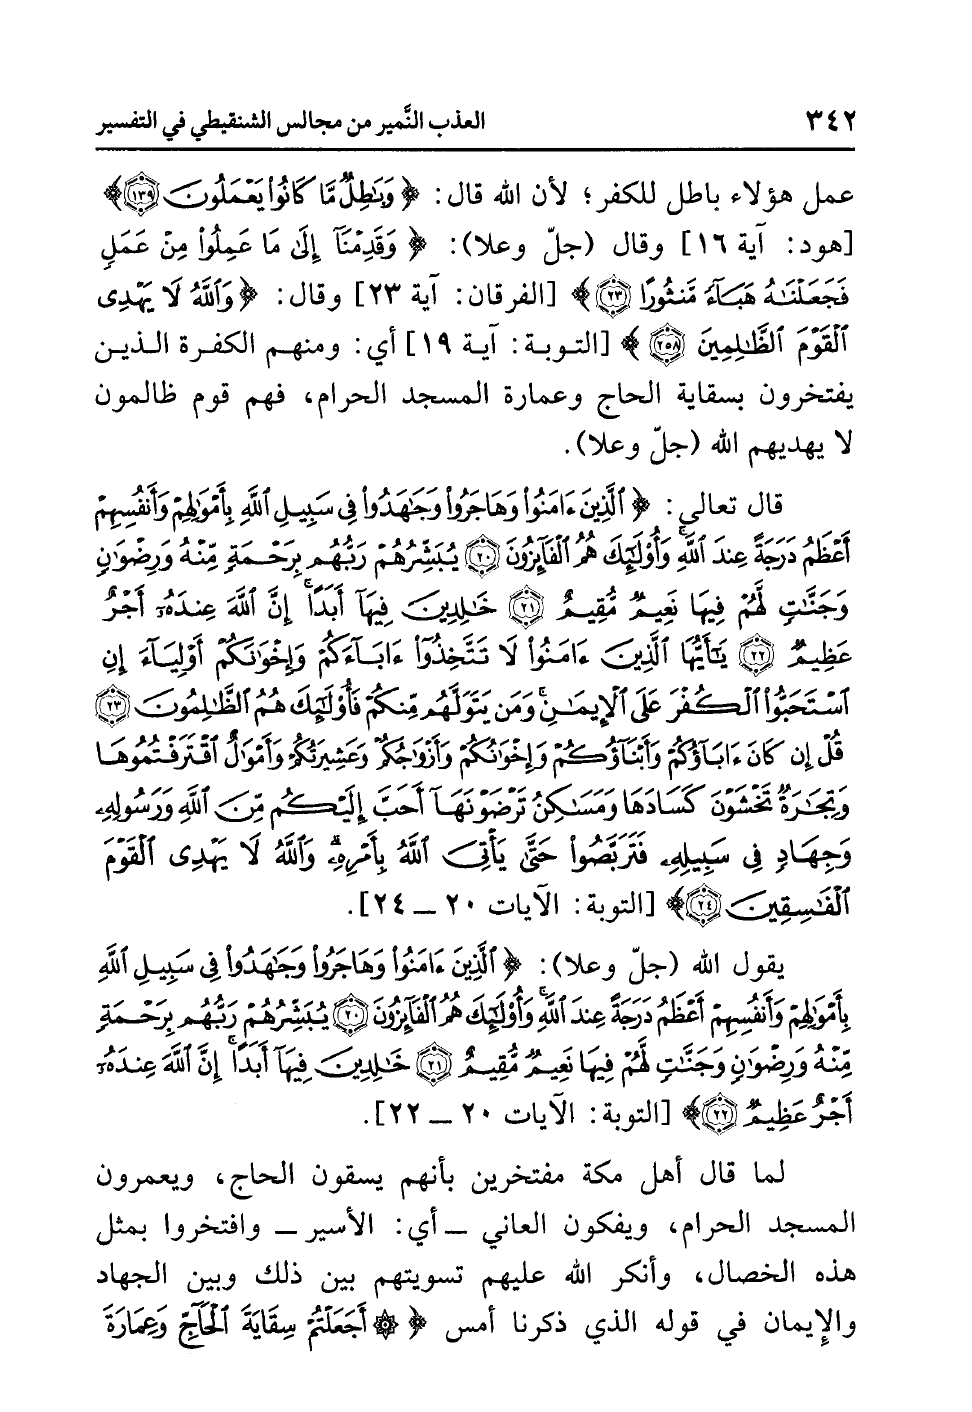 ٣٤٢ العذب النَّمير من مجالس الشنقيطي في التفسير
عمل هؤلاء باطل للكفر؛ لأن الله قال: ﴿ وَبَٰطِلٌ مَّا كَانُوا۟ يَعْمَلُونَ ١٣٩﴾
[هود: آية ١٦] وقال (جلّ وعلا): ﴿ وَقَدِمْنَآ إِلَىٰ مَا عَمِلُوا۟ مِنْ عَمَلٍ
فَجَعَلْنَٰهُ هَبَآءً مَّنثُورًا ٢٣﴾ [الفرقان: آية ٢٣] وقال: ﴿ وَٱللَّهُ لَا يَهْدِى
ٱلْقَوْمَ ٱلظَّٰلِمِينَ ٢٥٨﴾ [التوبة: آية ١٩] أي: ومنهم الكفرة الذين
يفتخرون بسقاية الحاج وعمارة المسجد الحرام، فهم قوم ظالمون
لا يهديهم الله (جلّ وعلا).
قال تعالى: ﴿ ٱلَّذِينَ ءَامَنُوا۟ وَهَاجَرُوا۟ وَجَٰهَدُوا۟ فِى سَبِيلِ ٱللَّهِ بِأَمْوَٰلِهِمْ وَأَنفُسِهِمْ
أَعْظَمُ دَرَجَةً عِندَ ٱللَّهِ ۚ وَأُو۟لَٰٓئِكَ هُمُ ٱلْفَآئِزُونَ ٢٠ يُبَشِّرُهُمْ رَبُّهُم بِرَحْمَةٍ مِّنْهُ وَرِضْوَٰنٍ
وَجَنَّٰتٍ لَّهُمْ فِيهَا نَعِيمٌ مُّقِيمٌ ٢١ خَٰلِدِينَ فِيهَآ أَبَدًا ۚ إِنَّ ٱللَّهَ عِندَهُۥٓ أَجْرٌ
عَظِيمٌ ٢٢ يَٰٓأَيُّهَا ٱلَّذِينَ ءَامَنُوا۟ لَا تَتَّخِذُوٓا۟ ءَابَآءَكُمْ وَإِخْوَٰنَكُمْ أَوْلِيَآءَ إِنِ
ٱسْتَحَبُّوا۟ ٱلْكُفْرَ عَلَى ٱلْإِيمَٰنِ ۚ وَمَن يَتَوَلَّهُم مِّنكُمْ فَأُو۟لَٰٓئِكَ هُمُ ٱلظَّٰلِمُونَ ٢٣
قُلْ إِن كَانَ ءَابَآؤُكُمْ وَأَبْنَآؤُكُمْ وَإِخْوَٰنُكُمْ وَأَزْوَٰجُكُمْ وَعَشِيرَتُكُمْ وَأَمْوَٰلٌ ٱقْتَرَفْتُمُوهَا
وَتِجَٰرَةٌ تَخْشَوْنَ كَسَادَهَا وَمَسَٰكِنُ تَرْضَوْنَهَآ أَحَبَّ إِلَيْكُم مِّنَ ٱللَّهِ وَرَسُولِهِۦ
وَجِهَادٍ فِى سَبِيلِهِۦ فَتَرَبَّصُوا۟ حَتَّىٰ يَأْتِىَ ٱللَّهُ بِأَمْرِهِۦ ۗ وَٱللَّهُ لَا يَهْدِى ٱلْقَوْمَ
ٱلْفَٰسِقِينَ ٢٤﴾ [التوبة: الآيات ٢٠ ــ ٢٤].
يقول الله (جلّ وعلا): ﴿ ٱلَّذِينَ ءَامَنُوا۟ وَهَاجَرُوا۟ وَجَٰهَدُوا۟ فِى سَبِيلِ ٱللَّهِ
بِأَمْوَٰلِهِمْ وَأَنفُسِهِمْ أَعْظَمُ دَرَجَةً عِندَ ٱللَّهِ ۚ وَأُو۟لَٰٓئِكَ هُمُ ٱلْفَآئِزُونَ ٢٠ يُبَشِّرُهُمْ رَبُّهُم بِرَحْمَةٍ
مِّنْهُ وَرِضْوَٰنٍ وَجَنَّٰتٍ لَّهُمْ فِيهَا نَعِيمٌ مُّقِيمٌ ٢١ خَٰلِدِينَ فِيهَآ أَبَدًا ۚ إِنَّ ٱللَّهَ عِندَهُۥٓ
أَجْرٌ عَظِيمٌ ٢٢﴾ [التوبة: الآيات ٢٠ ــ ٢٢].
لما قال أهل مكة مفتخرين بأنهم يسقون الحاج، ويعمرون
المسجد الحرام، ويفكون العاني ــ أي: الأسير ــ وافتخروا بمثل
هذه الخصال، وأنكر الله عليهم تسويتهم بين ذلك وبين الجهاد
والإيمان في قوله الذي ذكرنا أمس ﴿ ۞ أَجَعَلْتُمْ سِقَايَةَ ٱلْحَآجِّ وَعِمَارَةَ